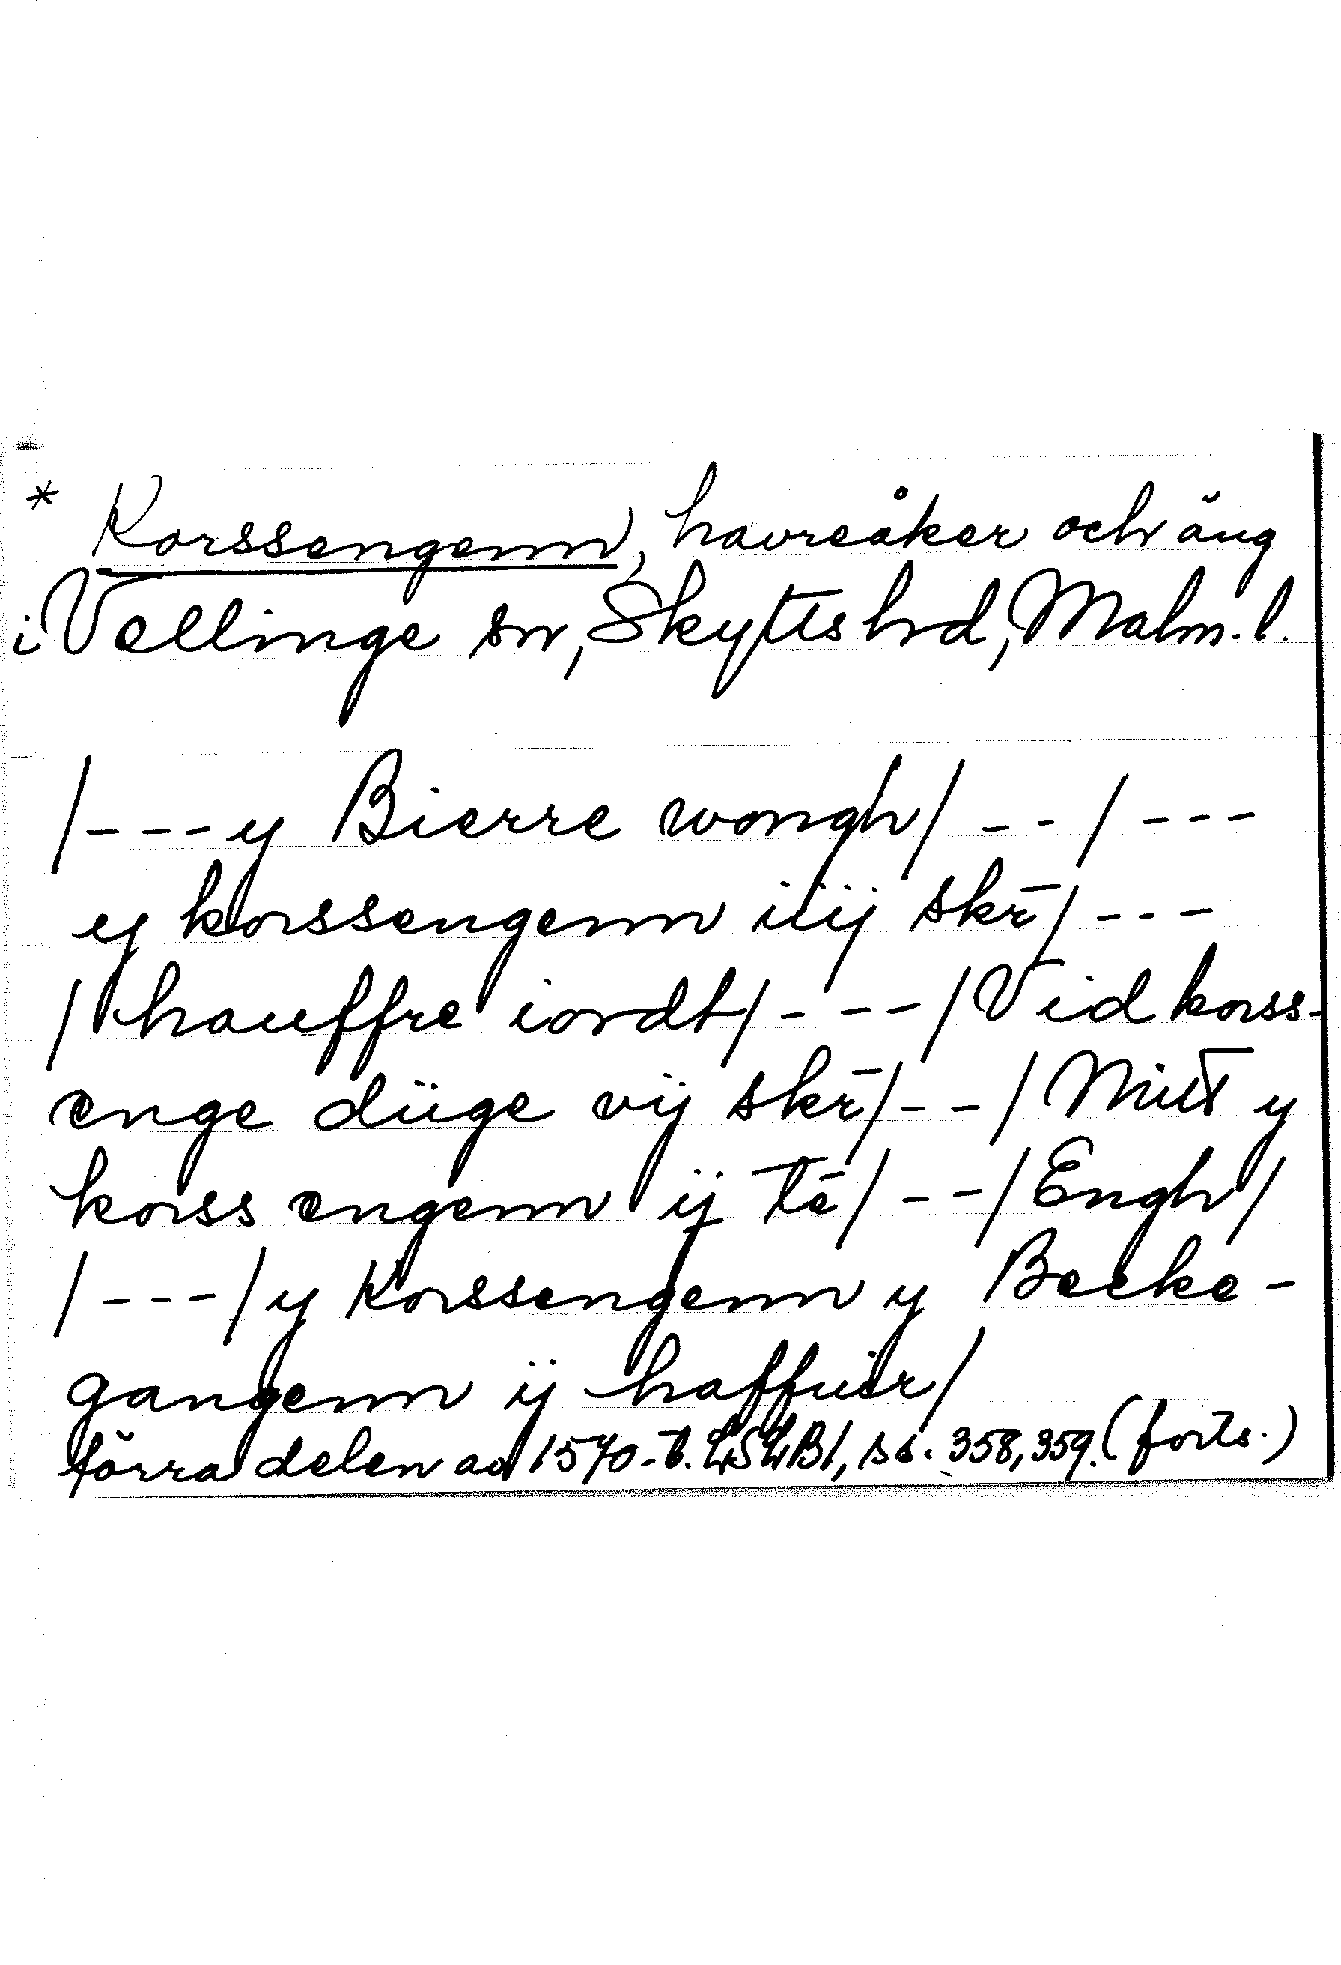 * Korssengenn, havreåker och äng
i Vellinge sn, Skytts hrd, Malm. l.
/---y Bierre wongh/ -- / ---
ey korssengenn iiij skr̄/---
/hauffre iordt/---/Vid korss-
enge diige vij skr̄/--/Mitt y
korss engenn ij tē/--/Engh/
/---/y Korssengenn y Becke-
gangenn ij haffuir/
förra delen av 1570-t. LSLB1, ss. 358, 359. (forts.)